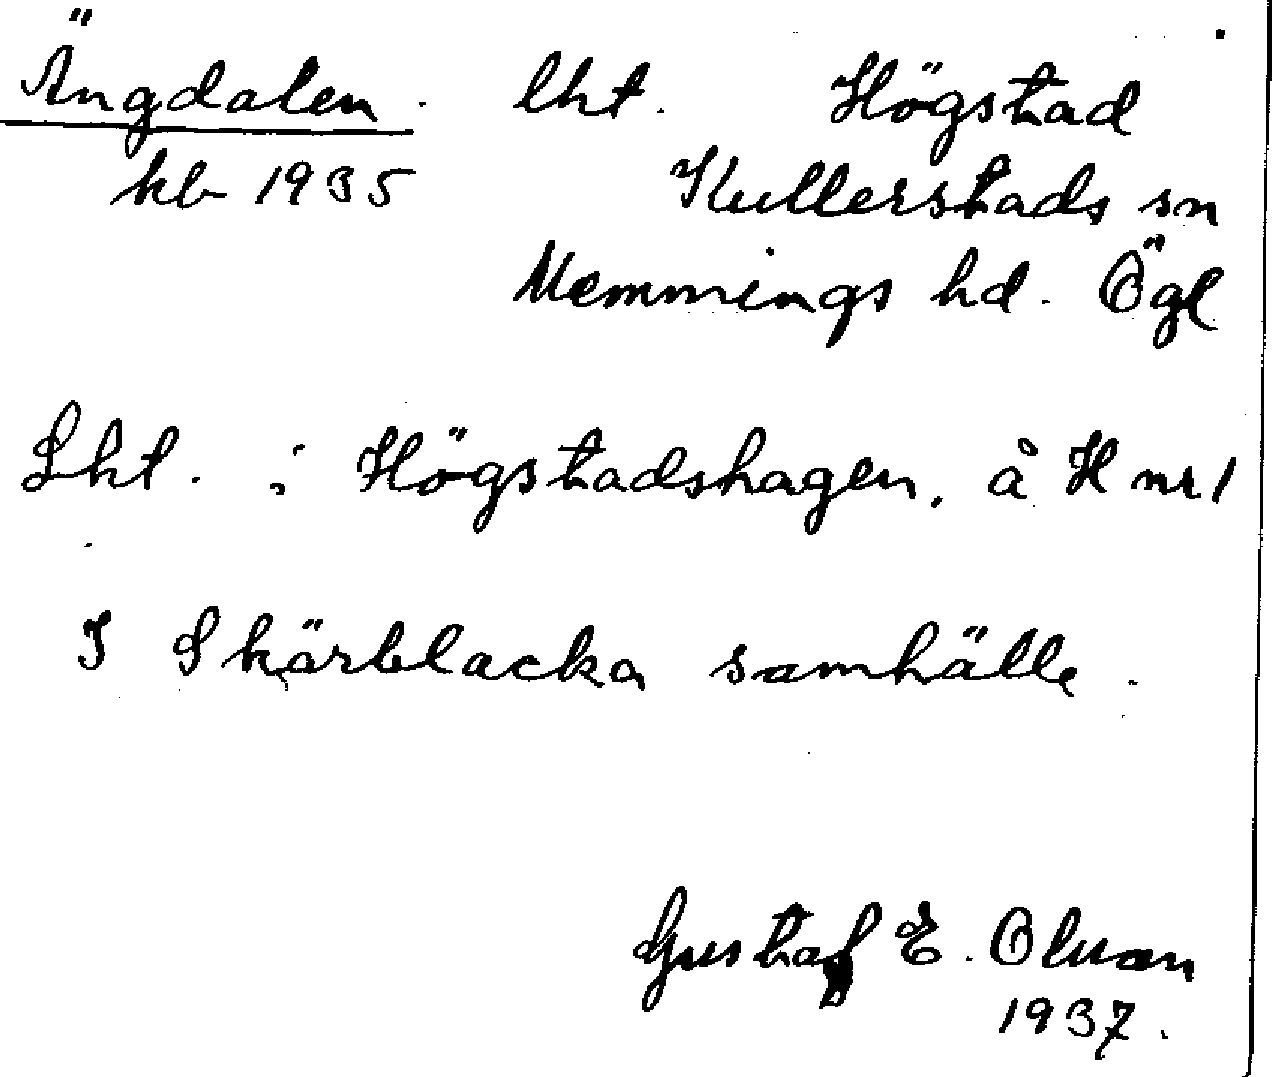 Ängdalen. lht. Högstad
kb 1935 Kullerstads sn
Memmings hd. Ögl
Lht. i Högstadshagen. å H nr 1
I Skärblacka samhälle.
Gustaf E. Oluan
1937.